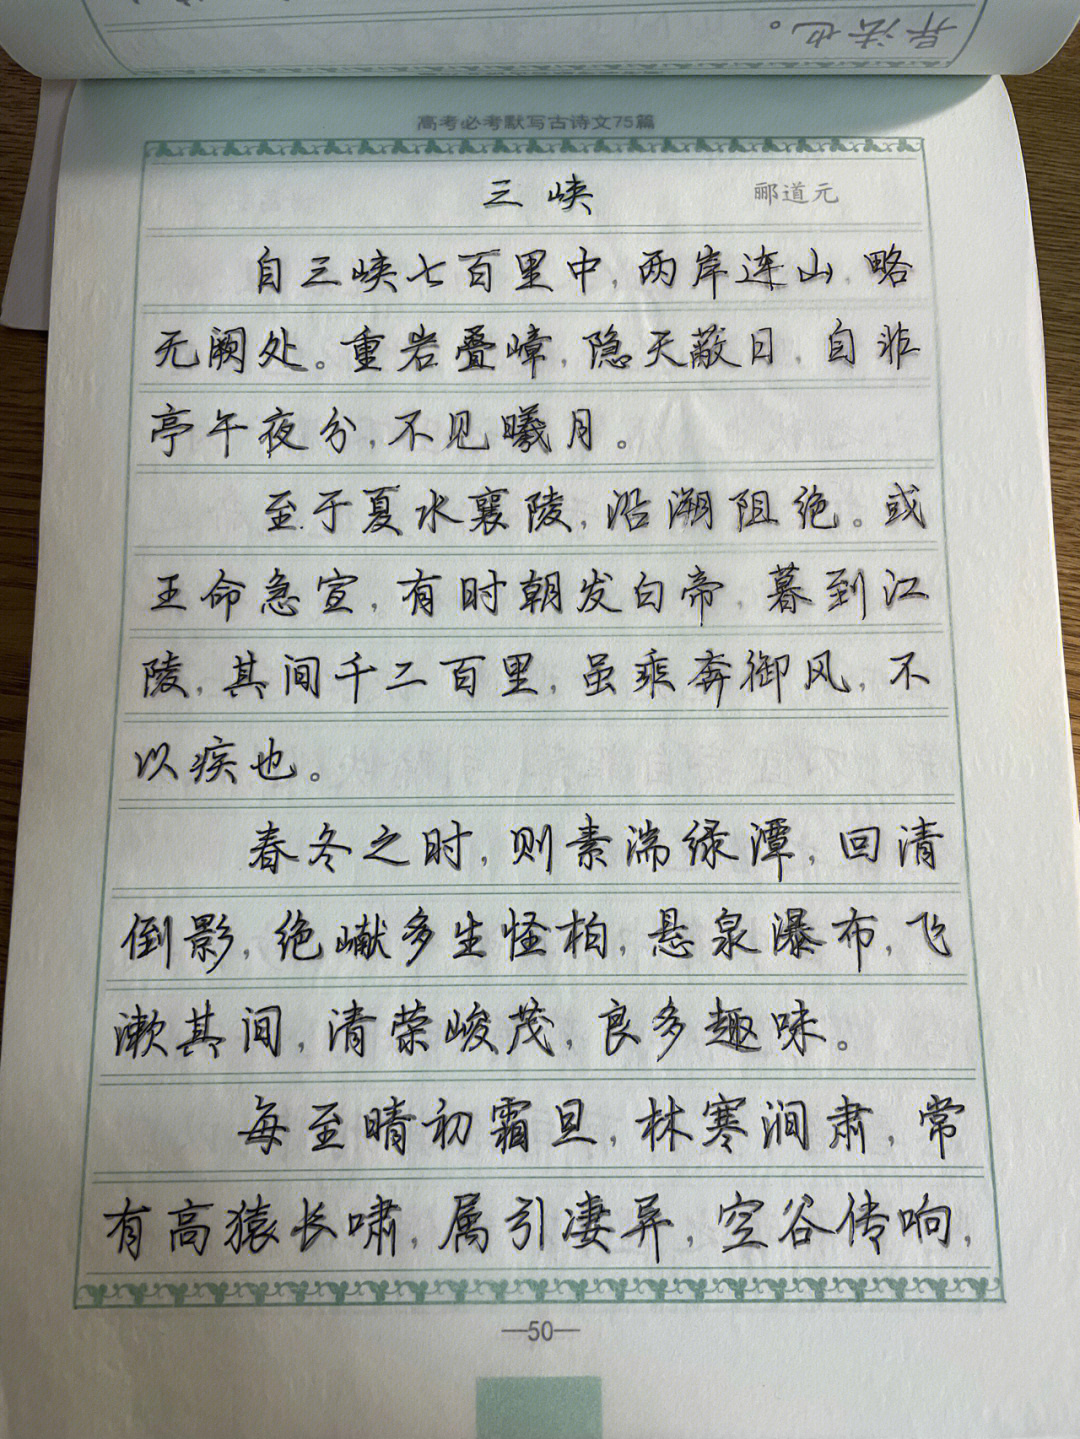 异法也。
高考必考默写古诗文75篇
三峡 郦道元
自三峡七百里中,两岸连山,略
无阙处。重岩叠嶂,隐天蔽日,自非
亭午夜分,不见曦月。
至于夏水襄陵,沿溯阻绝。或
王命急宣,有时朝发白帝,暮到江
陵,其间千二百里,虽乘奔御风,不
以疾也。
春冬之时,则素湍绿潭,回清
倒影,绝巘多生怪柏,悬泉瀑布,飞
漱其间,清荣峻茂,良多趣味。
每至晴初霜旦,林寒涧肃,常
有高猿长啸,属引凄异,空谷传响,
—50—